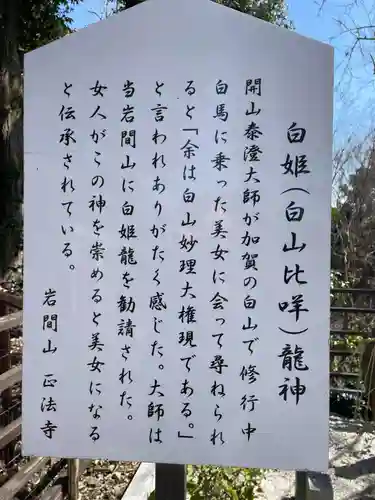 白姫（白山比咩）龍神
開山泰澄大師が加賀の白山で修行中
白馬に乗った美女に会って尋ねられ
ると「余は白山妙理大権現である。」
と言われありがたく感じた。大師は
当岩間山に白姫龍を勧請された。
女人がこの神を崇めると美女になる
と伝承されている。
岩間山 正法寺